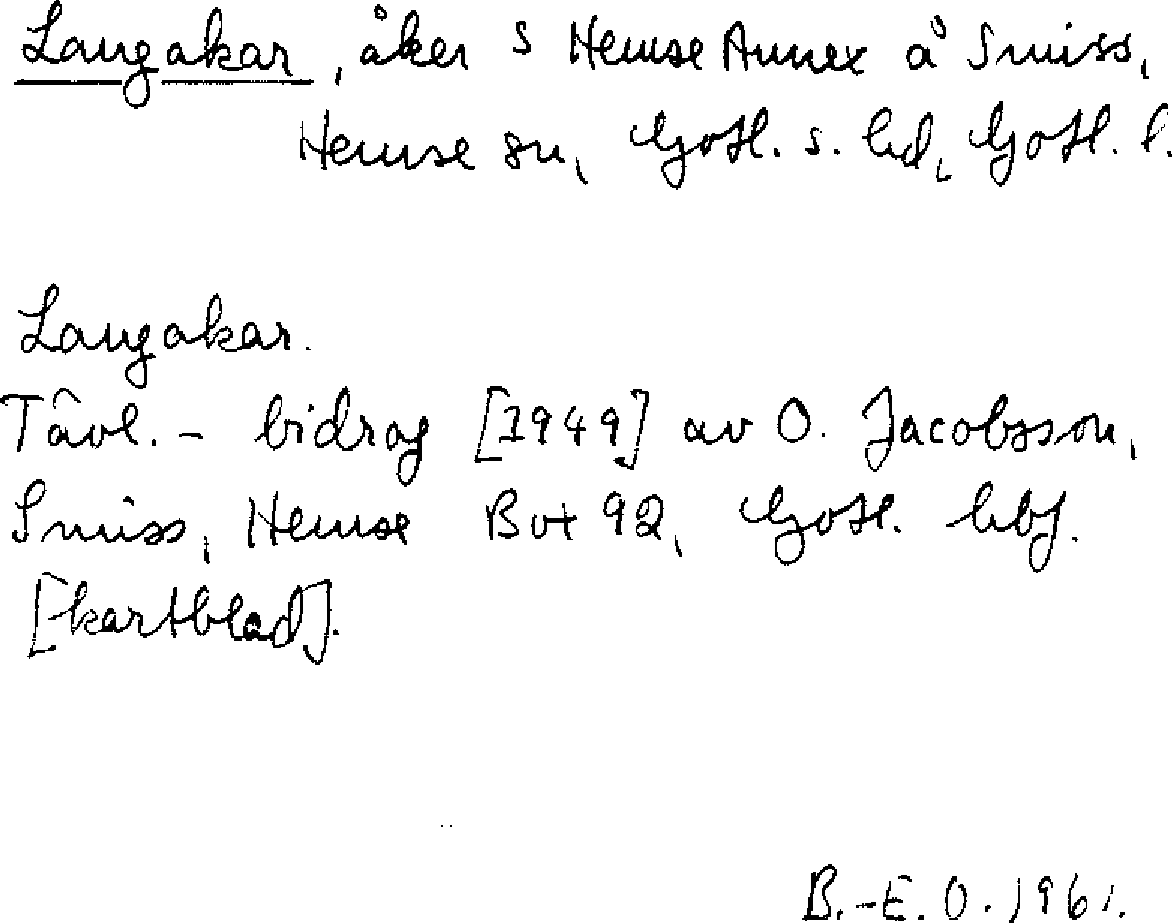 Langakar, åker S Hemse Annex å Smiss,
Hemse sn, Gotl. s. hd, Gotl. l.
Langakar.
Tävl.- bidrag [1949] av O. Jacobsson,
Smiss, Hemse Box 92, Gotl. hbf.
[kartblad].
B.-E. O. 1961.